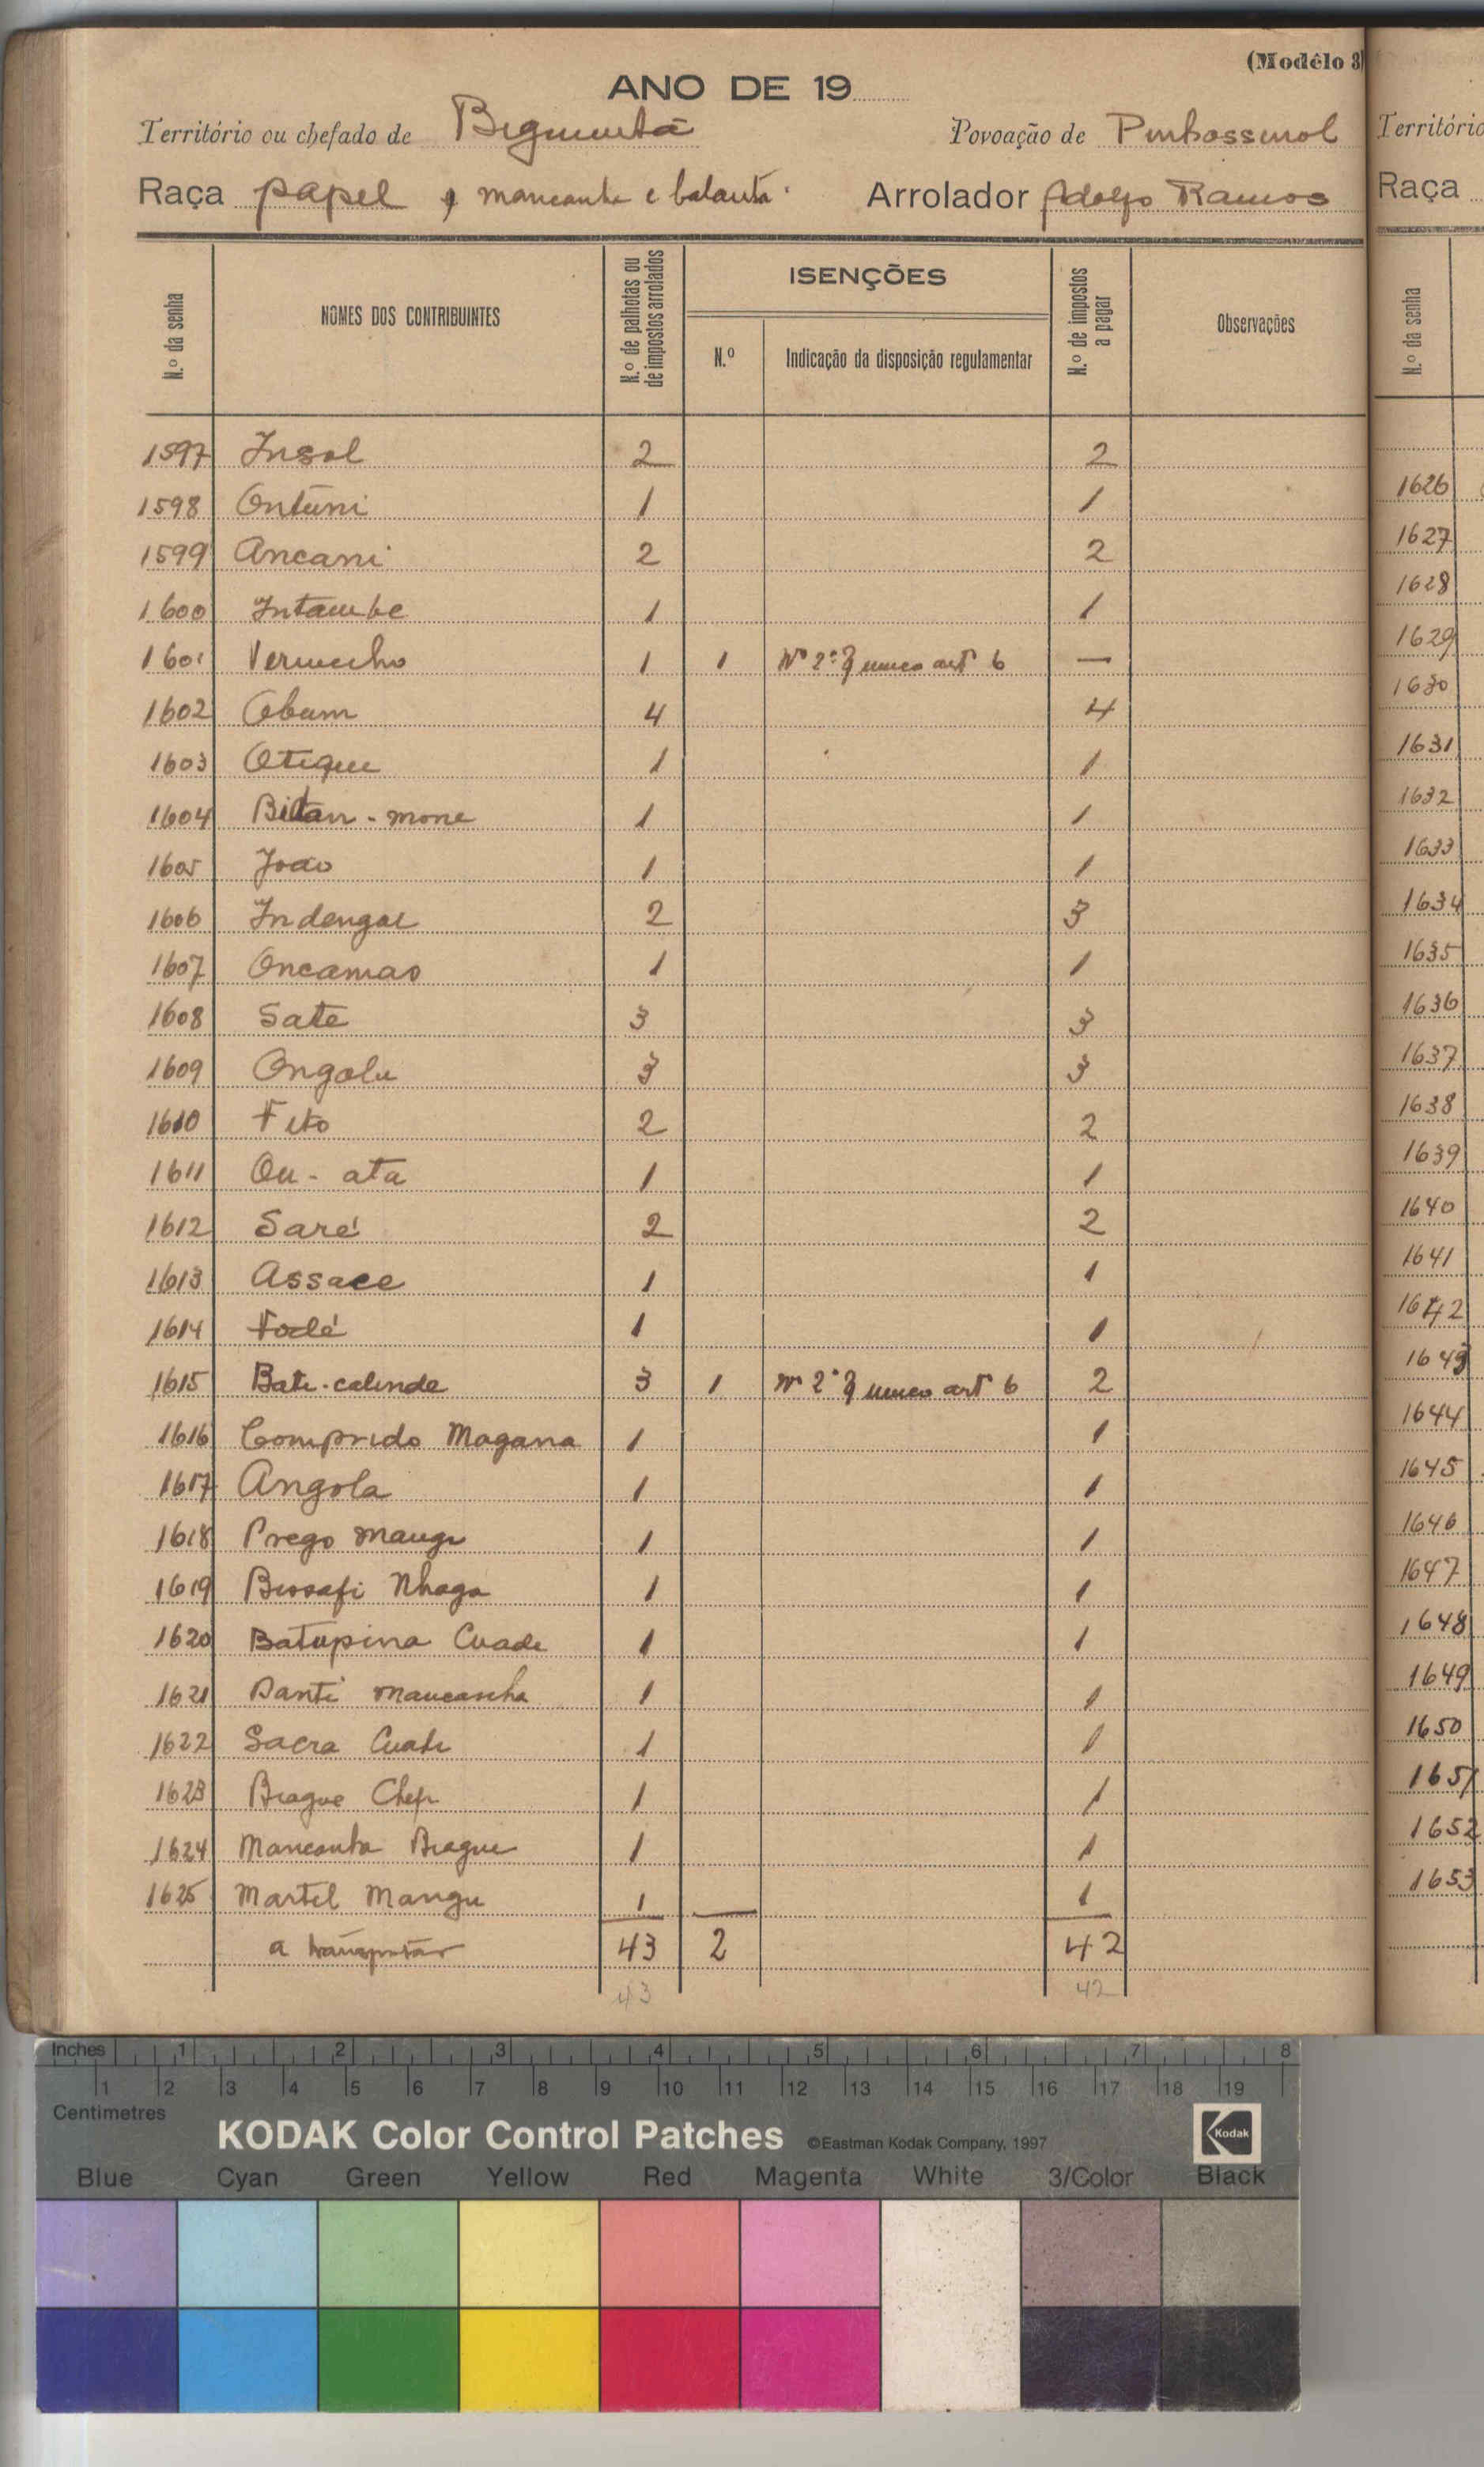 (Modêlo 3)
ANO DE 19
Território ou chefado de Bigimitã
Povoação de
Raça papel e mancanha e balanta
Arrolador Adolfo Ramos
N.º da senha
NOMES DOS CONTRIBUINTES
N.º de palhotas ou de impostos arrolados
ISENÇÕES
N.º
Indicação da disposição regulamentar
N.º de impostos a pagar
Observações
1597 Insol 2 2
1598 Ontuni 1 1
1599 Ancani 2 2
1600 Intambe 1 1
1601 Vermecho 1 1 Nº 2º § unico artº 6 —
1602 Obum 4 4
1603 Otique 1 1
1604 Bitan-mone 1 1
1605 João 1 1
1606 Indengar 2 3
1607 Oncamao 1 1
1608 Sate 3 3
1609 Ongolu 3 3
1610 Fito 2 2
1611 Ou-ata 1 1
1612 Saré 2 2
1613 Assace 1 1
1614 Fodé 1 1
1615 Bate-calinde 3 1 nº 2º § unico artº 6 2
1616 Comprido Magana 1 1
1617 Angola 1 1
1618 Prego Mangu 1 1
1619 Bissafi Nhaga 1 1
1620 Batupina Cuade 1 1
1621 Danti Mancanha 1 1
1622 Sacra Cuade 1 1
1623 Biague Chefe 1 1
1624 Mancanha Biague 1 1
1625 Martel Mangu 1 1
a transportar 43 2 42
43 42
Território
Raça
N.º da senha
1626
1627
1628
1629
1630
1631
1632
1633
1634
1635
1636
1637
1638
1639
1640
1641
1642
1643
1644
1645
1646
1647
1648
1649
1650
1651
1652
1653
Inches 1 2 3 4 5 6 7 8
1 2 3 4 5 6 7 8 9 10 11 12 13 14 15 16 17 18 19
Centimetres
KODAK Color Control Patches ©Eastman Kodak Company, 1997
Kodak
Blue Cyan Green Yellow Red Magenta White 3/Color Black